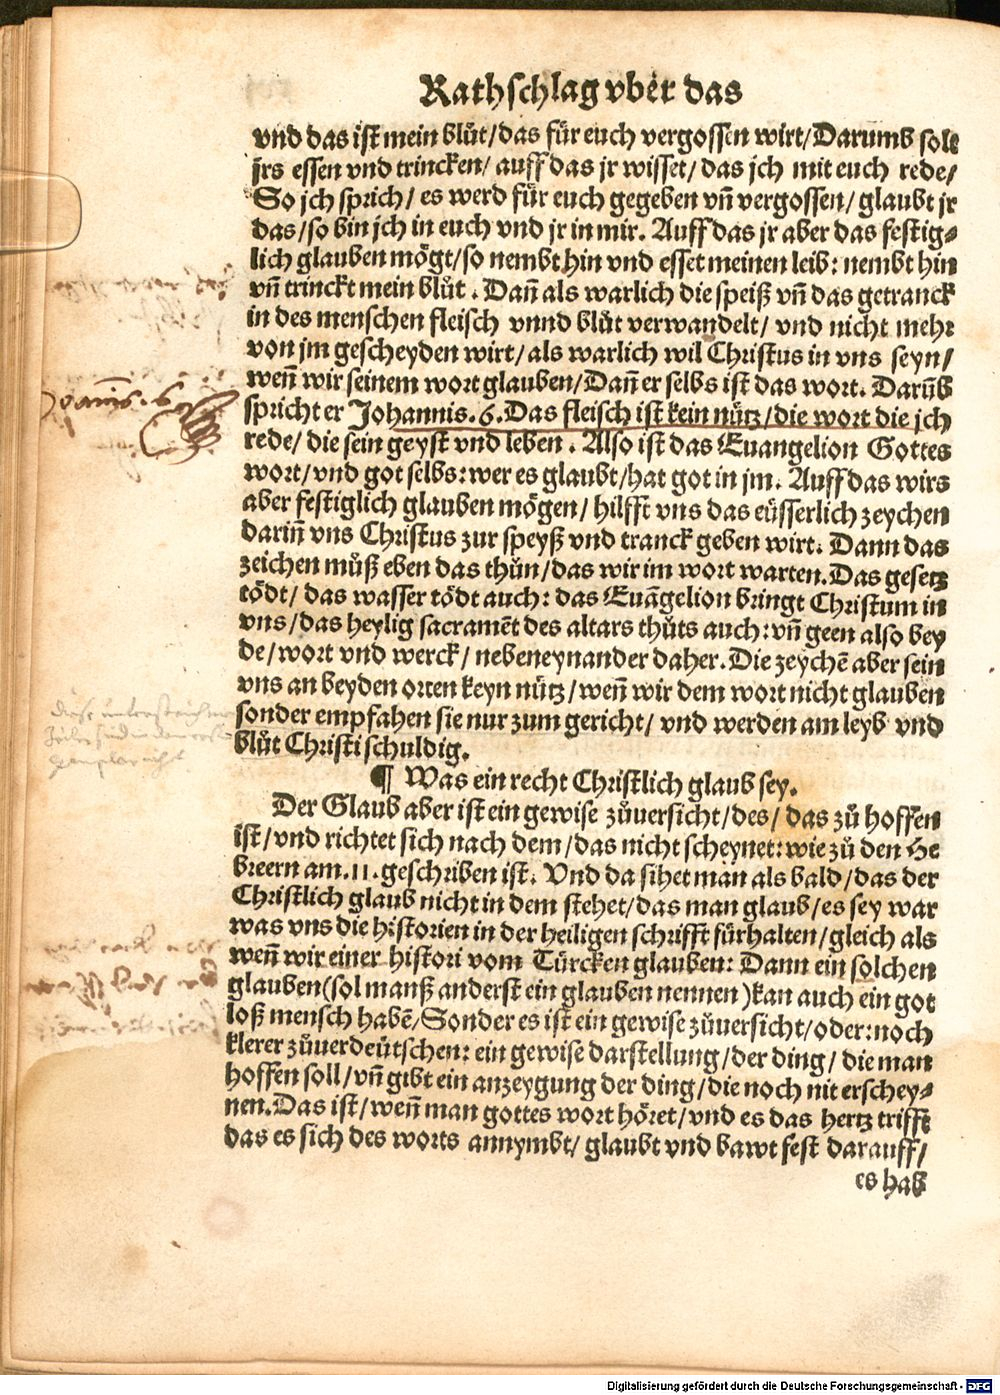 Rathschlag vber das
vnd das ist mein blůt/das für euch vergossen wirt/Darumb solt
jrs essen vnd trincken/ auff das jr wisset/ das jch mit euch rede/
So jch sprich/ es werd für euch gegeben vn̄ vergossen/ glaubt jr
das/so bin jch in euch vnd jr in mir. Auff das jr aber das festig-
lich glauben mögt/so nembt hin vnd esset meinen leib: nembt hin
vn̄ trinckt mein blůt. Dan̄ als warlich die speiß vn̄ das getranck
in des menschen fleisch vnnd blůt verwandelt/ vnd nicht mehr
von jm gescheyden wirt/ als warlich wil Christus in vns seyn/
wen̄ wir seinem wort glauben/Dan̄ er selbs ist das wort. Darūb
spricht er Johannis. 6. Das fleisch ist kein nütz/die wort die jch
rede/ die sein geyst vnd leben. Also ist das Euangelion Gottes
wort/vnd got selbs: wer es glaubt/hat got in jm. Auff das wirs
aber festiglich glauben mögen/ hilfft vns das eüsserlich zeychen
darin̄ vns Christus zur speyß vnd tranck geben wirt. Dann das
zeichen můß eben das thůn/das wir im wort warten. Das gesetz
tödt/ das wasser tödt auch: das Euāgelion bringt Christum in
vns/das heylig sacramēt des altars thůts auch: vn̄ geen also bey
de/wort vnd werck/ nebeneynander daher. Die zeychē aber sein
vns an beyden orten keyn nütz/wen̄ wir dem wort nicht glauben
sonder empfahen sie nur zum gericht/ vnd werden am leyb vnd
blůt Christi schuldig.
¶ Was ein recht Christlich glaub sey.
Der Glaub aber ist ein gewise zůuersicht/des/ das zů hoffen
ist/vnd richtet sich nach dem/das nicht scheynet: wie zů den He
breern am. 11. geschriben ist. Vnd da sihet man als bald/das der
Christlich glaub nicht in dem stehet/das man glaub/es sey war
was vns die historien in der heiligen schrifft fürhalten/gleich als
wen̄ wir einer histori vom Türcken glauben: Dann ein solchen
glauben(sol manß anderst ein glauben nennen)kan auch ein got
loß mensch habē/Sonder es ist ein gewise zůuersicht/oder: noch
klerer zůuerdeütschen: ein gewise darstellung/der ding/ die man
hoffen soll/vn̄ gibt ein anzeygung der ding/die noch nit erschey-
nen. Das ist/wen̄ man gottes wort höret/vnd es das hertz trifft
das es sich des worts annymbt/ glaubt vnd bawt fest darauff/
es hab
Joannis. 6
Digitalisierung gefördert durch die Deutsche Forschungsgemeinschaft - DFG